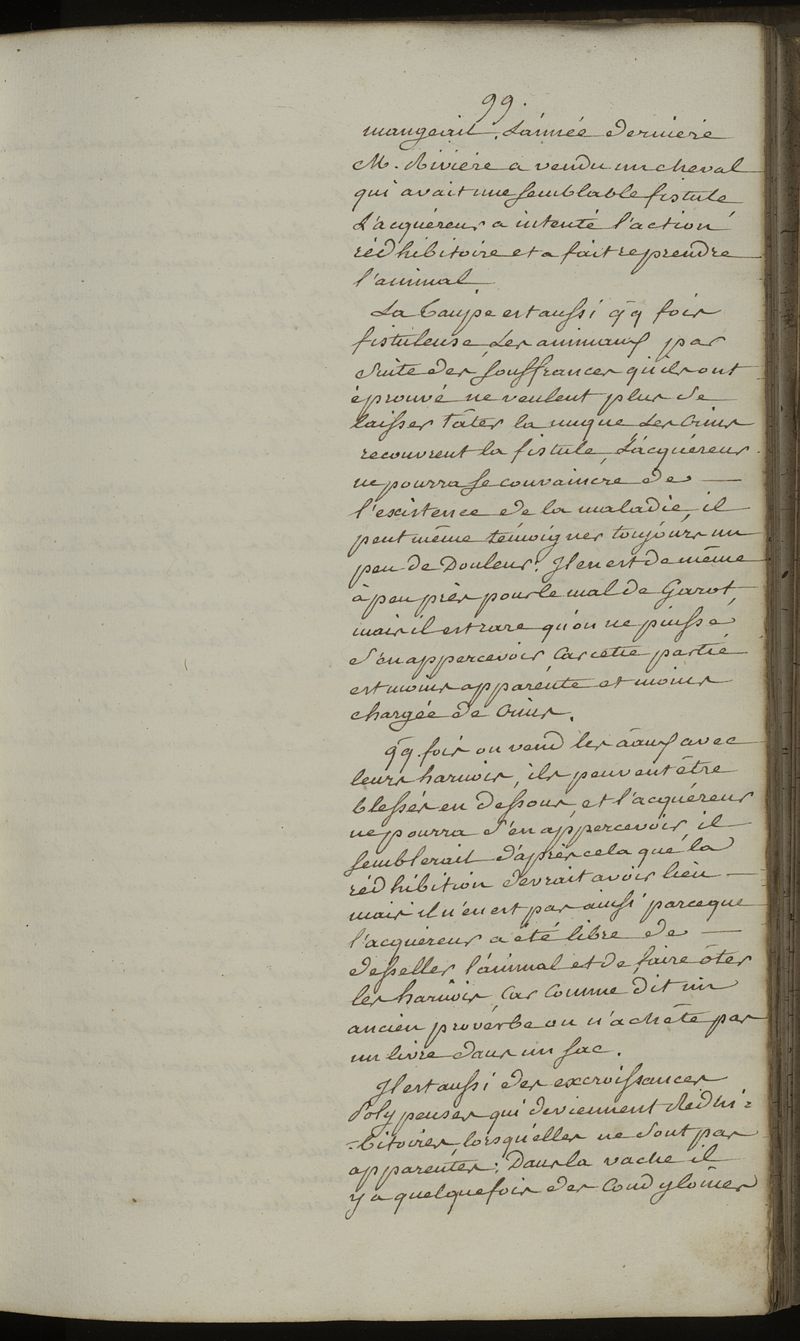 99.
mangeait. L'année derniere
M. Riviere a vendu un cheval
qui avait une semblable fistule
L'acquéreur a intenté l'action
rédhibitoire et a fait reprendre
l'animal
La Taupe est aussi qq fois
fistuleuse, Les animaux par
suite des souffrances qu'ils ont
éprouvé ne veulent plus se
laisser tâter la nuque, Les Crins
recouvrent la fistule, L'acquéreur
ne pourra se convaincre de
l'existence de la maladie, il
peut même témoigner toujours un
peu de Douleur. Il en est de même
à peu près pour le mal de Garot,
mais il est rare qu'on ne puisse
s'en appercevoir Car cette partie
est moins apparente et moins
chargée de Crins.
qq. fois on vend les āāux avec
leurs harnois, ils peuvent être
blessés en dessous, et l'acquéreur
ne pourra s'en appercevoir, il
semblerait d'après cela que la
rédhibition devrait avoir lieu
mais il n'en est pas ainsi parceque
l'acquéreur a été libre de
desseller l'animal et de faire ôter
les harnois Car Comme dit un
ancien proverbe on n'achète pas
un livre dans un sac.
Il est aussi des excroissances
Polypeuses qui deviennent Rédhi=
=bitoires, lorsqu'elles ne sont pas
apparentes; Dans la vache il
y a quelquefois des Condylômes